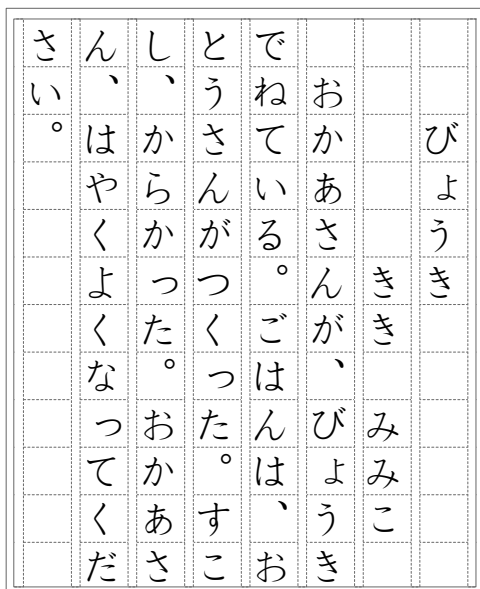 びょうき
きき　みみこ
おかあさんが、びょうき
でねている。ごはんは、お
とうさんがつくった。すこ
し、からかった。おかあさ
ん、はやくよくなってくだ
さい。